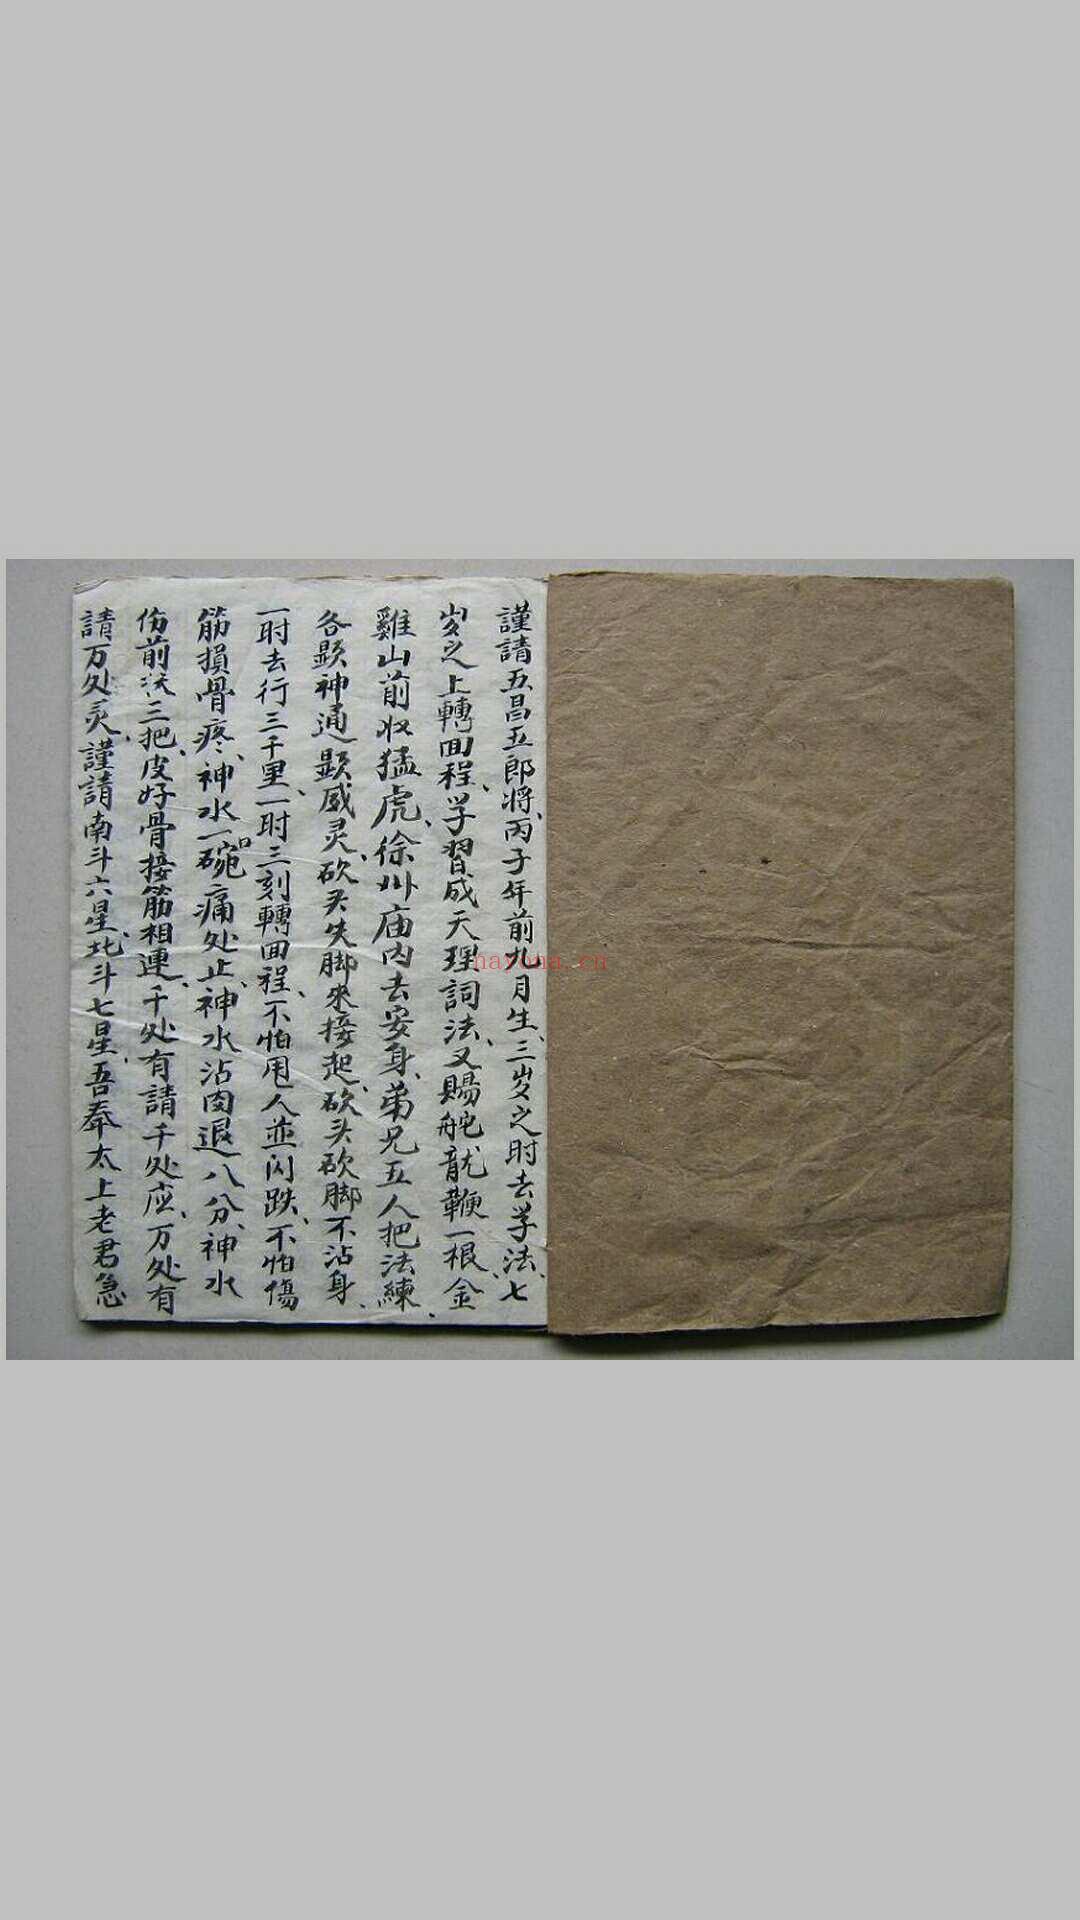 謹請五昌五郎将、丙子年前九月生、三岁之时去学法、七
岁之上轉回程、学習成天理詞法、又賜舵龍鞭一根、金
雞山前收猛虎、徐州庙内去安身、弟兄五人把法練、
各顕神通顕威灵、砍头失脚來接起、砍头砍脚不沾身、
一时去行三千里、一时三刻轉回程、不怕甩人並闪跌、不怕傷
筋損骨疼、神水一碗痛处止、神水沾肉退八分、神水
伤前三把、皮好骨接筋相連、千处有請千处应、万处有
請万处灵、謹請南斗六星、北斗七星、吾奉太上老君急
nayona.cn